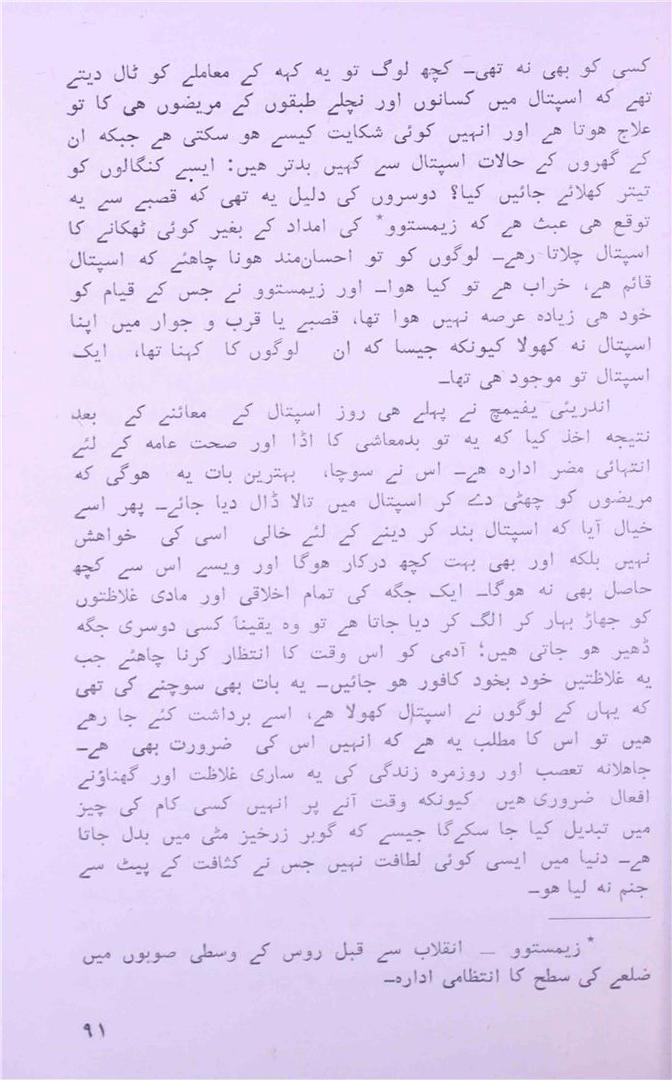 کسی کو بھی نہ تھی۔ کچھ لوگ تو یہ کہہ کے معاملے کو ٹال دیتے
تھے کہ اسپتال میں کسانوں اور نچلے طبقوں کے مریضوں ھی کا تو
علاج ھوتا ھے اور انہیں کوئی شکایت کیسے ھو سکتی ھے جبکہ ان
کے گھروں کے حالات اسپتال سے کہیں بدتر ھیں: ایسے کنگالوں کو
تیتر کھلائے جائیں کیا؟ دوسروں کی دلیل یہ تھی کہ قصبے سے یہ
توقع ھی عبث ھے کہ زیمستوو* کی امداد کے بغیر کوئی ٹھکانے کا
اسپتال چلاتا رھے۔ لوگوں کو تو احسان‌مند ھونا چاھئے کہ اسپتال
قائم ھے، خراب ھے تو کیا ھوا۔ اور زیمستوو نے جس کے قیام کو
خود ھی زیادہ عرصہ نہیں ھوا تھا، قصبے یا قرب و جوار میں اپنا
اسپتال نہ کھولا کیونکہ جیسا کہ ان لوگوں کا کہنا تھا، ایک
اسپتال تو موجود ھی تھا۔
اندریئی یفیمچ نے پہلے ھی روز اسپتال کے معائنے کے بعد
نتیجہ اخذ کیا کہ یہ تو بدمعاشی کا اڈا اور صحت عامہ کے لئے
انتہائی مضر ادارہ ھے۔ اس نے سوچا، بہترین بات یہ ھوگی کہ
مریضوں کو چھٹی دے کر اسپتال میں تالا ڈال دیا جائے۔ پھر اسے
خیال آیا کہ اسپتال بند کر دینے کے لئے خالی اسی کی خواھش
نہیں بلکہ اور بھی بہت کچھ درکار ھوگا اور ویسے اس سے کچھ
حاصل بھی نہ ھوگا۔ ایک جگہ کی تمام اخلاقی اور مادی غلاظتوں
کو جھاڑ بہار کر الگ کر دیا جاتا ھے تو وہ یقیناً کسی دوسری جگہ
ڈھیر ھو جاتی ھیں؛ آدمی کو اس وقت کا انتظار کرنا چاھئے جب
یہ غلاظتیں خود بخود کافور ھو جائیں۔ یہ بات بھی سوچنے کی تھی
کہ یہاں کے لوگوں نے اسپتال کھولا ھے، اسے برداشت کئے جا رھے
ھیں تو اس کا مطلب یہ ھے کہ انہیں اس کی ضرورت بھی ھے۔
جاھلانہ تعصب اور روزمرہ زندگی کی یہ ساری غلاظت اور گھناؤنے
افعال ضروری ھیں کیونکہ وقت آنے پر انہیں کسی کام کی چیز
میں تبدیل کیا جا سکےگا جیسے کہ گوبر زرخیز مٹی میں بدل جاتا
ھے۔ دنیا میں ایسی کوئی لطافت نہیں جس نے کثافت کے پیٹ سے
جنم نہ لیا ھو۔
* زیمستوو — انقلاب سے قبل روس کے وسطی صوبوں میں
ضلعے کی سطح کا انتظامی ادارہ۔
۹۱